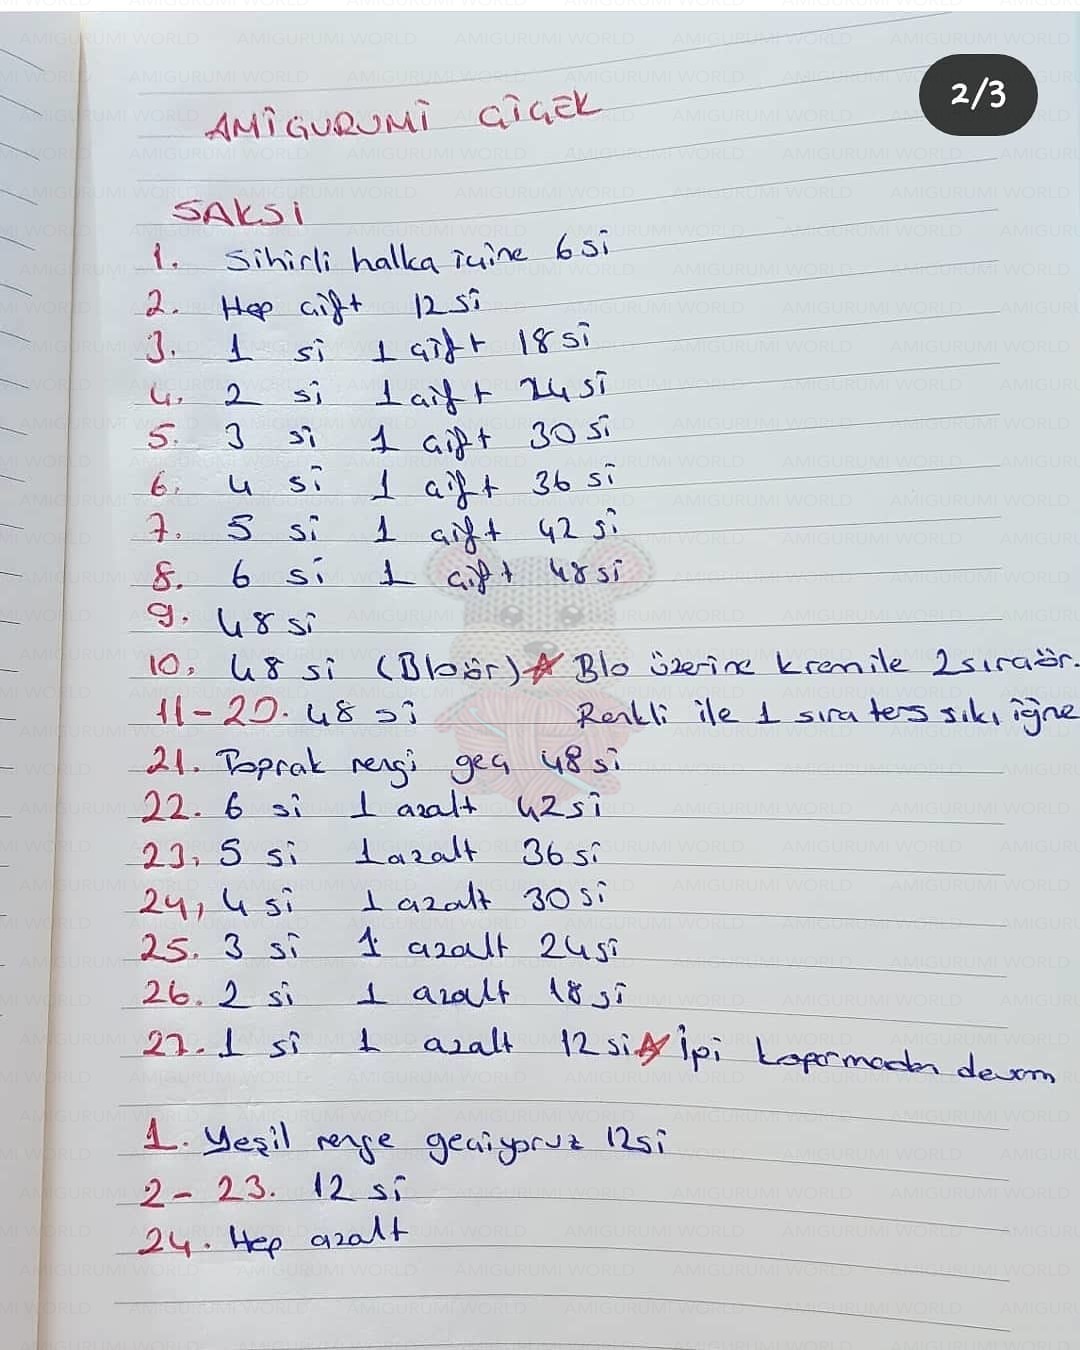 2/3
AMİGURUMİ ÇİÇEK
SAKSI
1. Sihirli halka içine 6 si
2. Hep çift 12 si
3. 1 si 1 çift 18 si
4. 2 si 1 çift 24 si
5. 3 si 1 çift 30 si
6. 4 si 1 çift 36 si
7. 5 si 1 çift 42 si
8. 6 si 1 çift 48 si
9. 48 si
10. 48 si (Bloör) ☆ Blo üzerine krem ile 2 sıra ör.
11-20. 48 si Renkli ile 1 sıra ters sıkı iğne
21. Toprak rengi geç 48 si
22. 6 si 1 azalt 42 si
23. 5 si 1 azalt 36 si
24, 4 si 1 azalt 30 si
25. 3 si 1 azalt 24 si
26. 2 si 1 azalt 18 si
27. 1 si 1 azalt 12 si ☆ İpi koparmadan devam
1. Yeşil renge geçiyoruz 12 si
2-23. 12 si
24. Hep azalt
AMIGURUMI WORLD